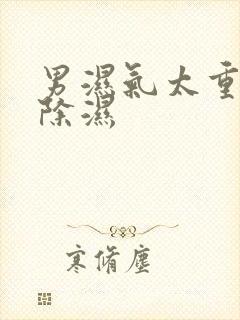 男濕氣太重
除濕
寒脩塵